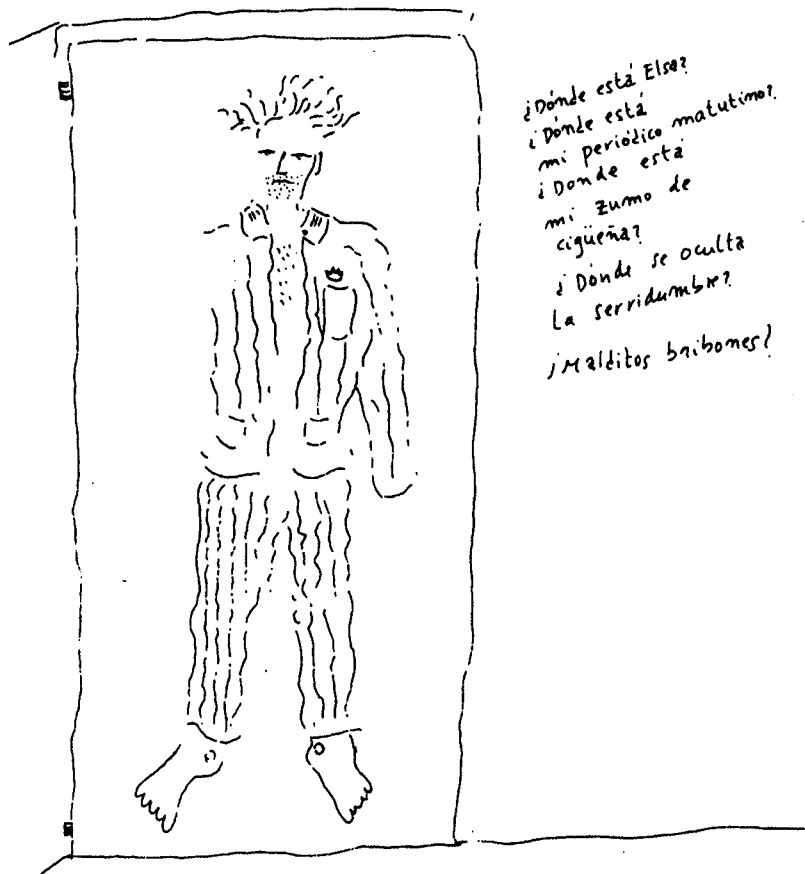 ¿Dónde está Elsa?
¿Dónde está
mi periódico matutino?
¿Donde está
mi zumo de
cigüeña?
¿Dónde se oculta
la serridumbre?
¡Malditos bribones!